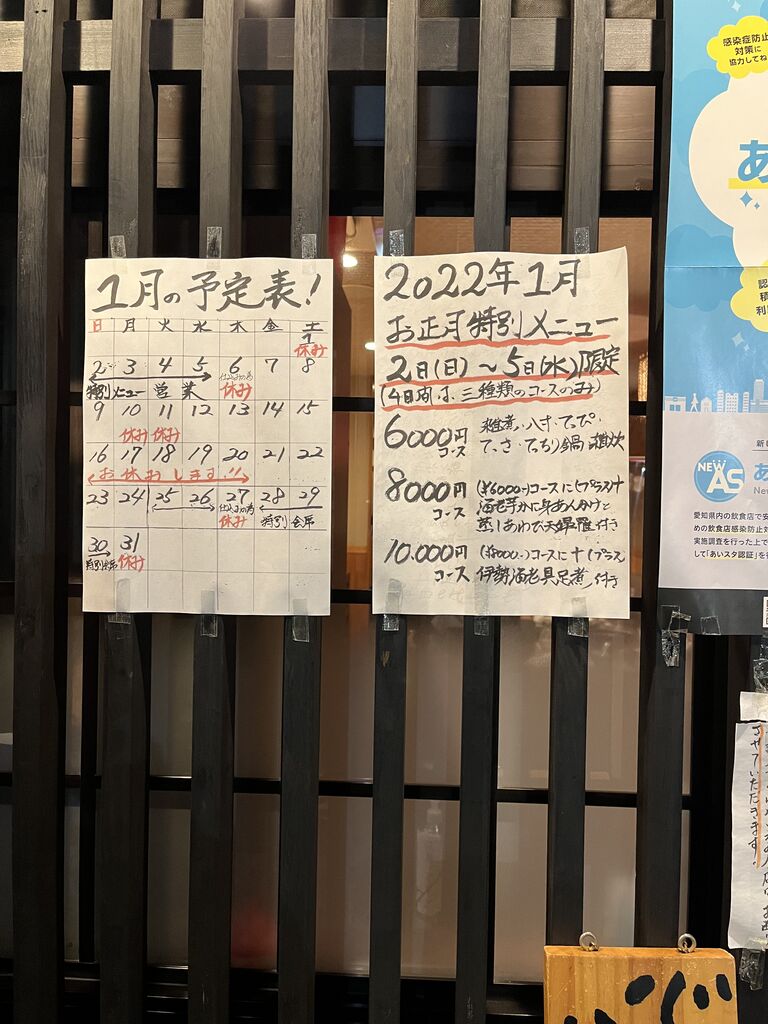 1月の予定表!
日 月 火 水 木 金 土
1
休み
2 3 4 5 6 7 8
特別メニュー営業 仕込みの為 休み
9 10 11 12 13 14 15
休み 休み
16 17 18 19 20 21 22
お休みします!!
23 24 25 26 27 28 29
仕込みの為 休み 特別会席
30 31
特別会席 休み
2022年1月
お正月特別メニュー
2日(日)~5日(水)限定
(4日間は、三種類のコースのみ)
6000円
コース
雑煮・八寸・てっぴ・
てっさ・てっちり鍋 雑炊
8000円
コース
(¥6000-)コースに(プラス)+
海老芋かに身あんかけと
蒸しあわび天婦羅 付き
10.000円
コース
(¥8000-)コースに+(プラス)
伊勢海老具足煮 付き
感染症防止
対策に
協力してね
あ
認
積
利用
新し
NEW
AS
あ
New
愛知県内の飲食店で安
めの飲食店感染防止対
実施調査を行った上で
して「あいスタ認証」を行
させていただきます!